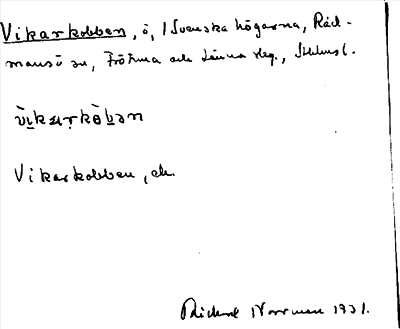 Vikarkobben, ö, i Svenska högarna, Råd-
mansö sn, Frötuna och Länna skg., Sthlmsl.
Vikarkobben, ök.
Rickard Norrman 1931.